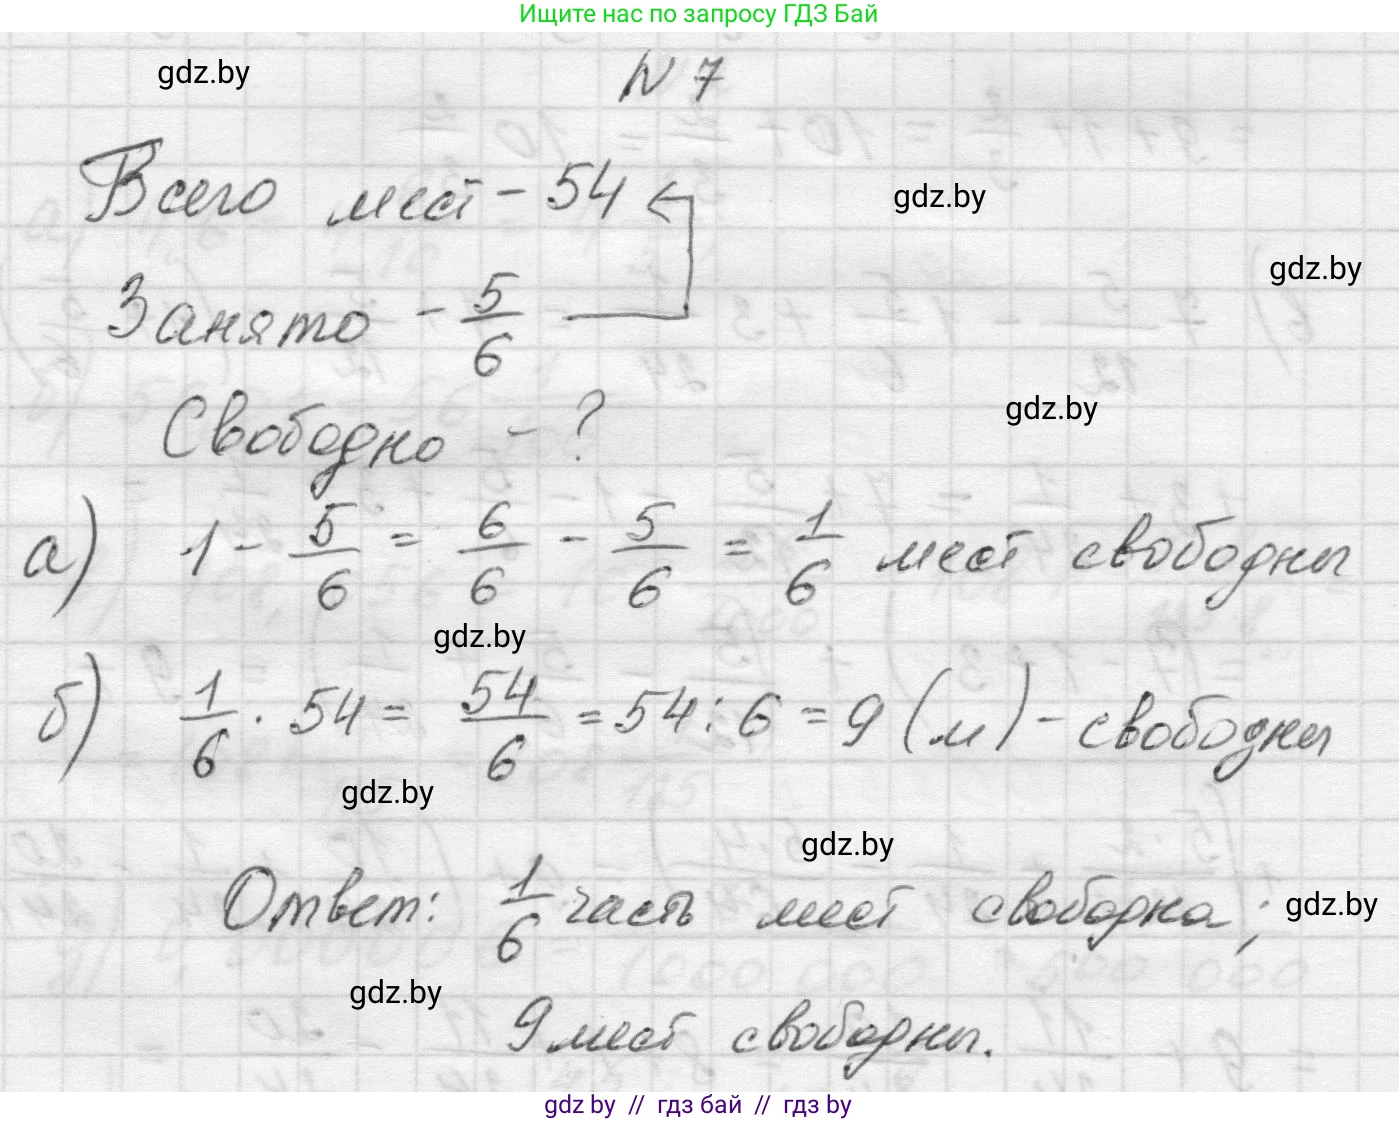 Ищите нас по запросу ГДЗ Бай
gdz.by
N 7
Всего мест - 54
gdz.by
gdz.by
Занято - 5/6
gdz.by
Свободно - ?
а) 1 - 5/6 = 6/6 - 5/6 = 1/6 мест свободны
gdz.by
б) 1/6 · 54 = 54/6 = 54 : 6 = 9 (м) - свободны
gdz.by
gdz.by
Ответ: 1/6 часть мест свободна;
gdz.by
gdz.by
9 мест свободны.
gdz by // гдз бай // гдз by